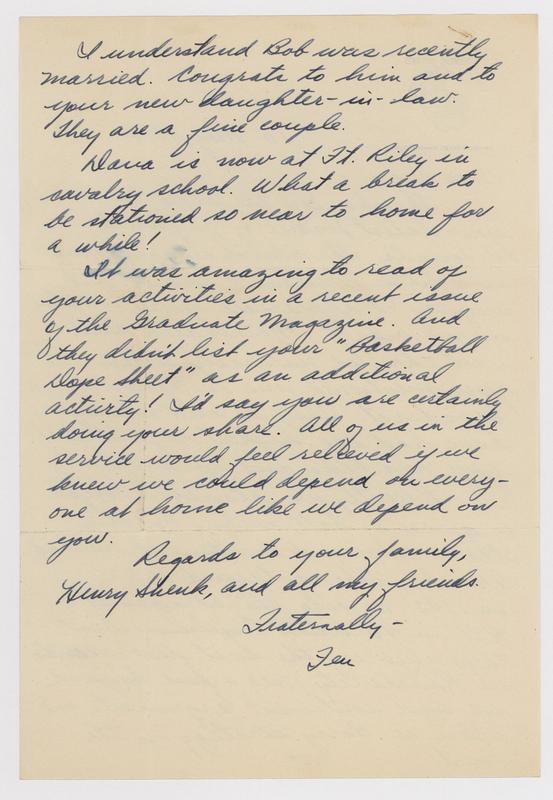 I understand Bob was recently
married. Congrats to him and to
your new daughter-in-law.
They are a fine couple.
Dana is now at Ft. Riley in
cavalry school. What a break to
be stationed so near to home for
a while!
It was amazing to read of
your activities in a recent issue
of the Graduate Magazine. And
they didn't list your "Basketball
Dope Sheet" as an additional
activity! I'd say you are certainly
doing your share. All of us in the
service would feel relieved if we
knew we could depend on every-
one at home like we depend on
you.
Regards to your family,
Henry Shenk, and all my friends.
Fraternally-
Fen